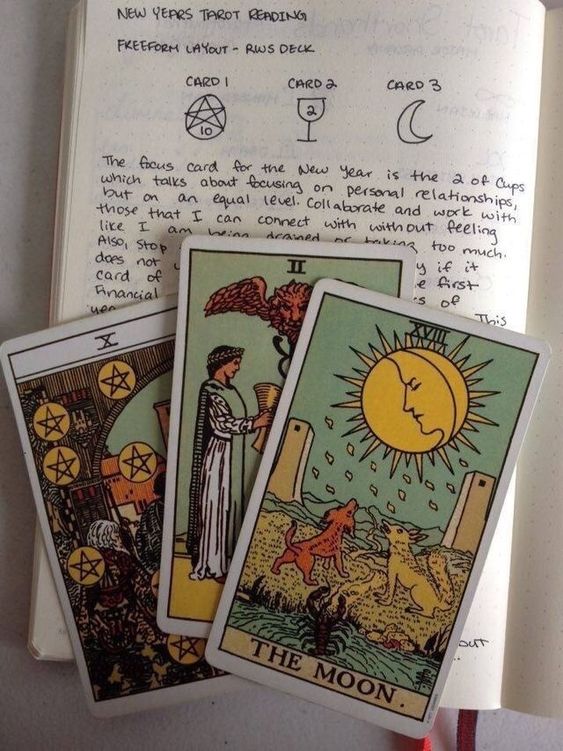 NEW YEARS TAROT READING
FREEFORM LAYOUT - RWS DECK
CARD 1 CARD 2 CARD 3
10 2
The focus card for the New Year is the 2 of Cups
which talks about focusing on personal relationships,
but on an equal level. Collaborate and work with
those that I can connect with without feeling
like I am being drained or taking too much.
Also, stop
does not y if it
card of e first
Financial s of
This
OUT
X
II
XVIII
THE MOON.